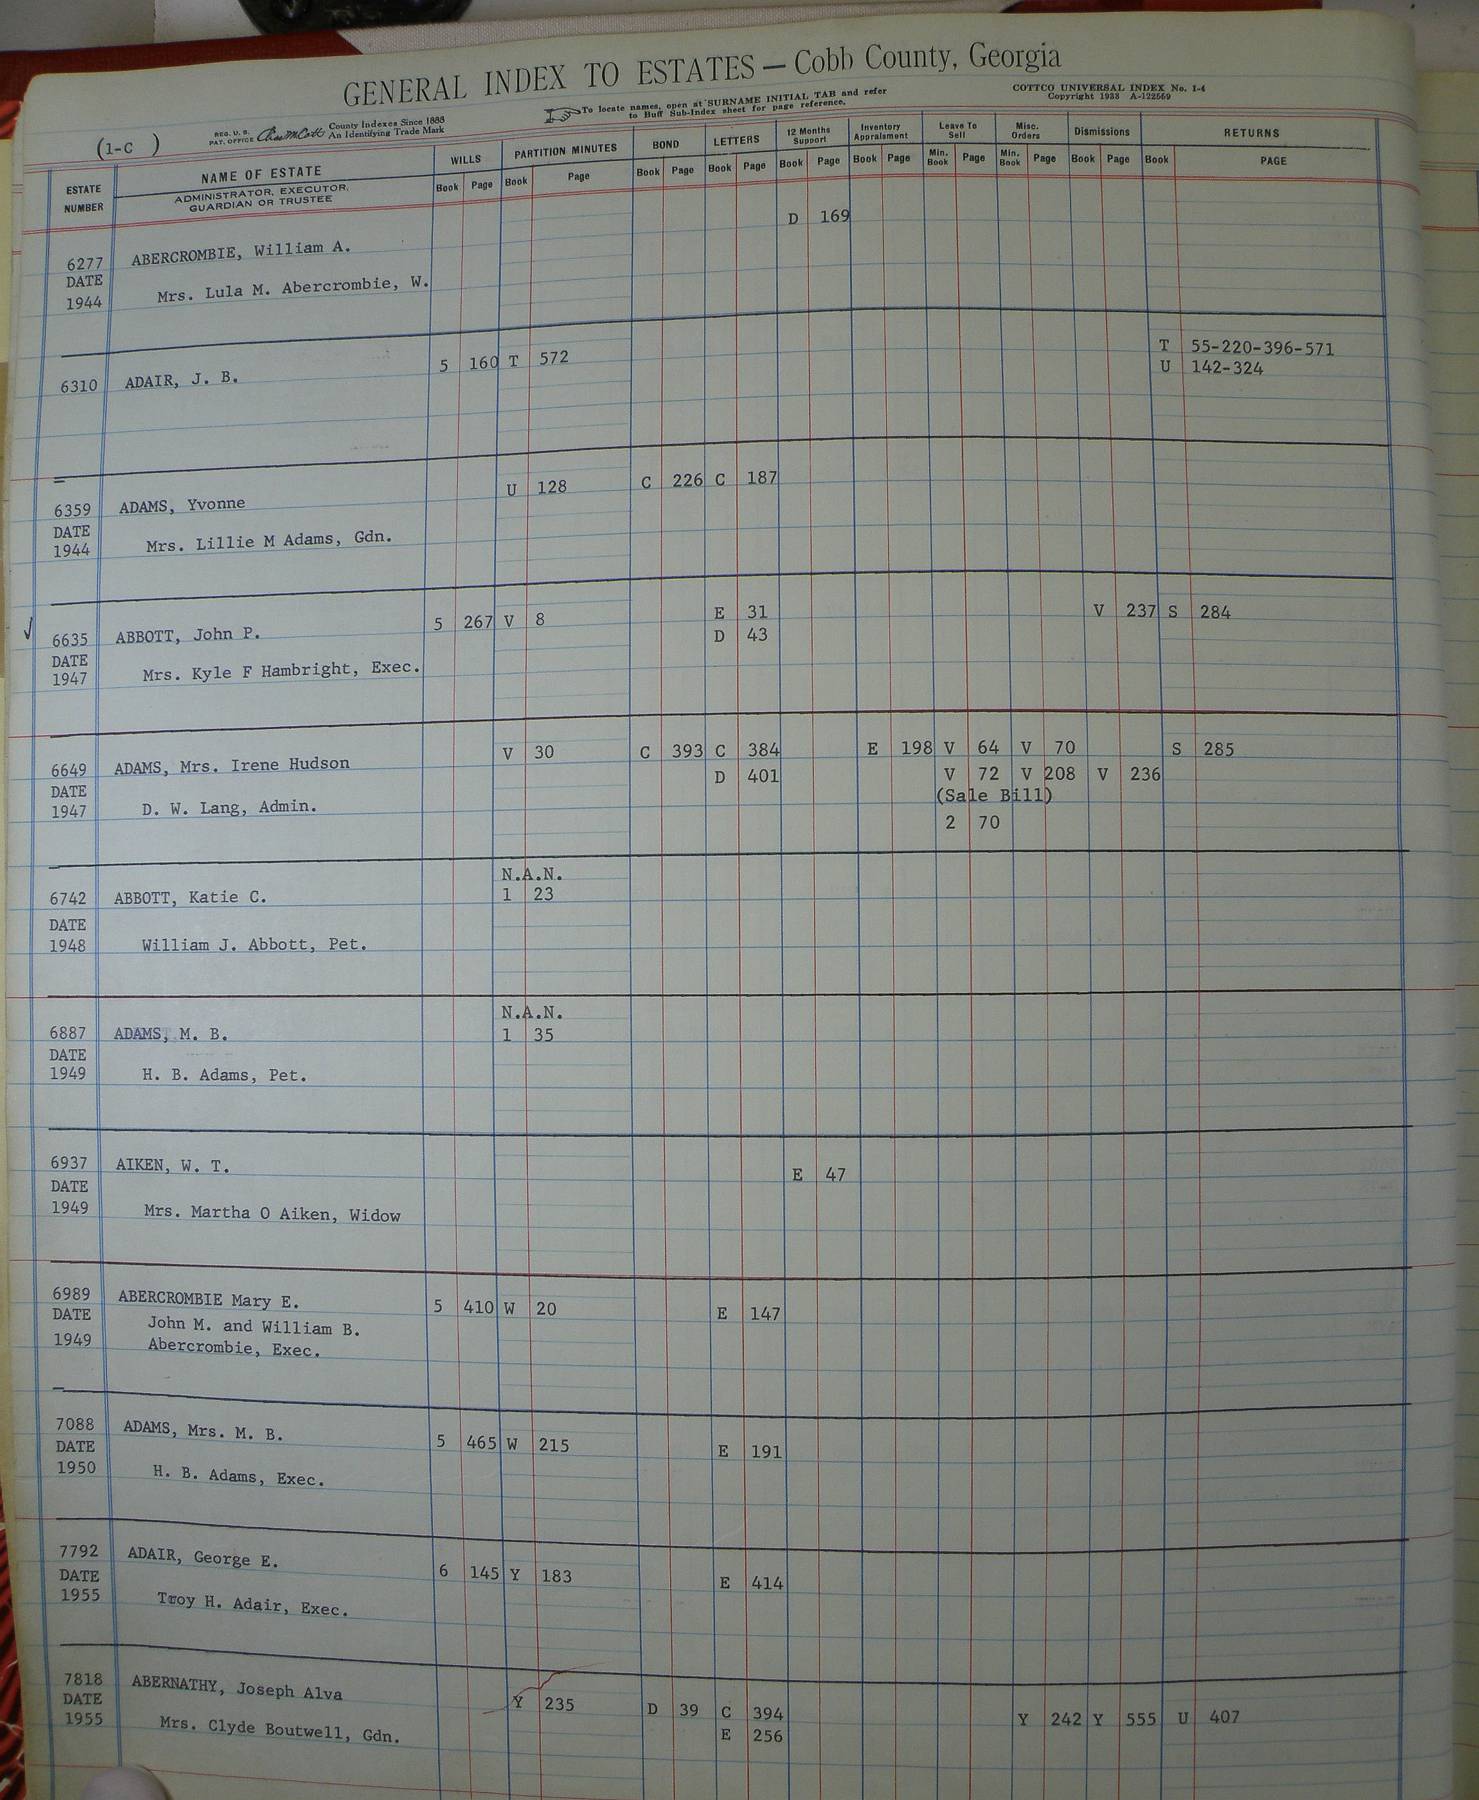 GENERAL INDEX TO ESTATES — Cobb County, Georgia
To locate names, open at SURNAME INITIAL TAB and refer
to Buff Sub-Index sheet for page reference.
COTTCO UNIVERSAL INDEX No. 1-4
Copyright 1933 A-122569
(1-C )
REG. U. S.
PAT. OFFICE
County Indexes Since 1888
An Identifying Trade Mark
ESTATE
NUMBER
NAME OF ESTATE
ADMINISTRATOR, EXECUTOR,
GUARDIAN OR TRUSTEE
WILLS
Book Page
PARTITION MINUTES
Book Page
BOND
Book Page
LETTERS
Book Page
12 Months
Support
Book Page
Inventory
Appraisment
Book Page
Leave To
Sell
Min.
Book Page
Misc.
Orders
Min.
Book Page
Dismissions
Book Page
RETURNS
Book PAGE
D 169
6277 ABERCROMBIE, William A.
DATE
1944 Mrs. Lula M. Abercrombie, W.
6310 ADAIR, J. B. 5 160 T 572 T 55-220-396-571
U 142-324
6359 ADAMS, Yvonne U 128 C 226 C 187
DATE
1944 Mrs. Lillie M Adams, Gdn.
6635 ABBOTT, John P. 5 267 V 8 E 31 V 237 S 284
D 43
DATE
1947 Mrs. Kyle F Hambright, Exec.
6649 ADAMS, Mrs. Irene Hudson V 30 C 393 C 384 E 198 V 64 V 70 S 285
DATE D 401 V 72 V 208 V 236
(Sale Bill)
1947 D. W. Lang, Admin. 2 70
N.A.N.
6742 ABBOTT, Katie C. 1 23
DATE
1948 William J. Abbott, Pet.
N.A.N.
6887 ADAMS, M. B. 1 35
DATE
1949 H. B. Adams, Pet.
6937 AIKEN, W. T. E 47
DATE
1949 Mrs. Martha O Aiken, Widow
6989 ABERCROMBIE Mary E. 5 410 W 20 E 147
DATE John M. and William B.
1949 Abercrombie, Exec.
7088 ADAMS, Mrs. M. B. 5 465 W 215 E 191
DATE
1950 H. B. Adams, Exec.
7792 ADAIR, George E. 6 145 Y 183 E 414
DATE
1955 Troy H. Adair, Exec.
7818 ABERNATHY, Joseph Alva Y 235 D 39 C 394 Y 242 Y 555 U 407
DATE E 256
1955 Mrs. Clyde Boutwell, Gdn.